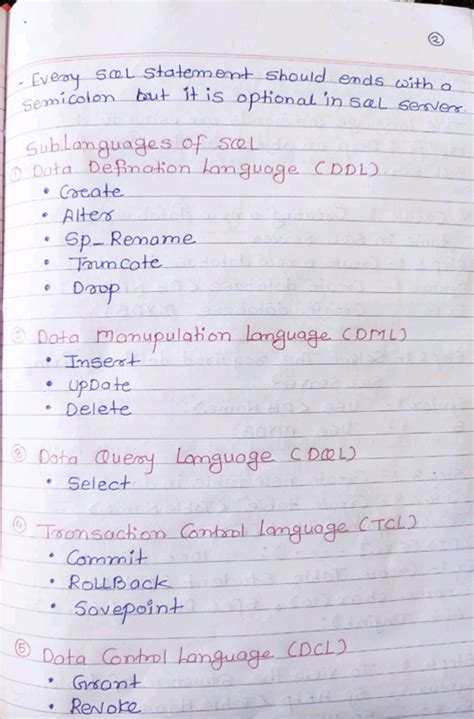 ②
- Every SQL statement should ends with a
semicolon but it is optional in SQL server
Sublanguages of SQL
① Data Defination Language (DDL)
• Create
• Alter
• Sp_Rename
• Truncate
• Drop
② Data Manupulation language (DML)
• Insert
• UpDate
• Delete
③ Data Query Language (DQL)
• Select
④ Transaction Control Language (TCL)
• Commit
• RollBack
• Savepoint
⑤ Data Control Language (DCL)
• Grant
• Revoke